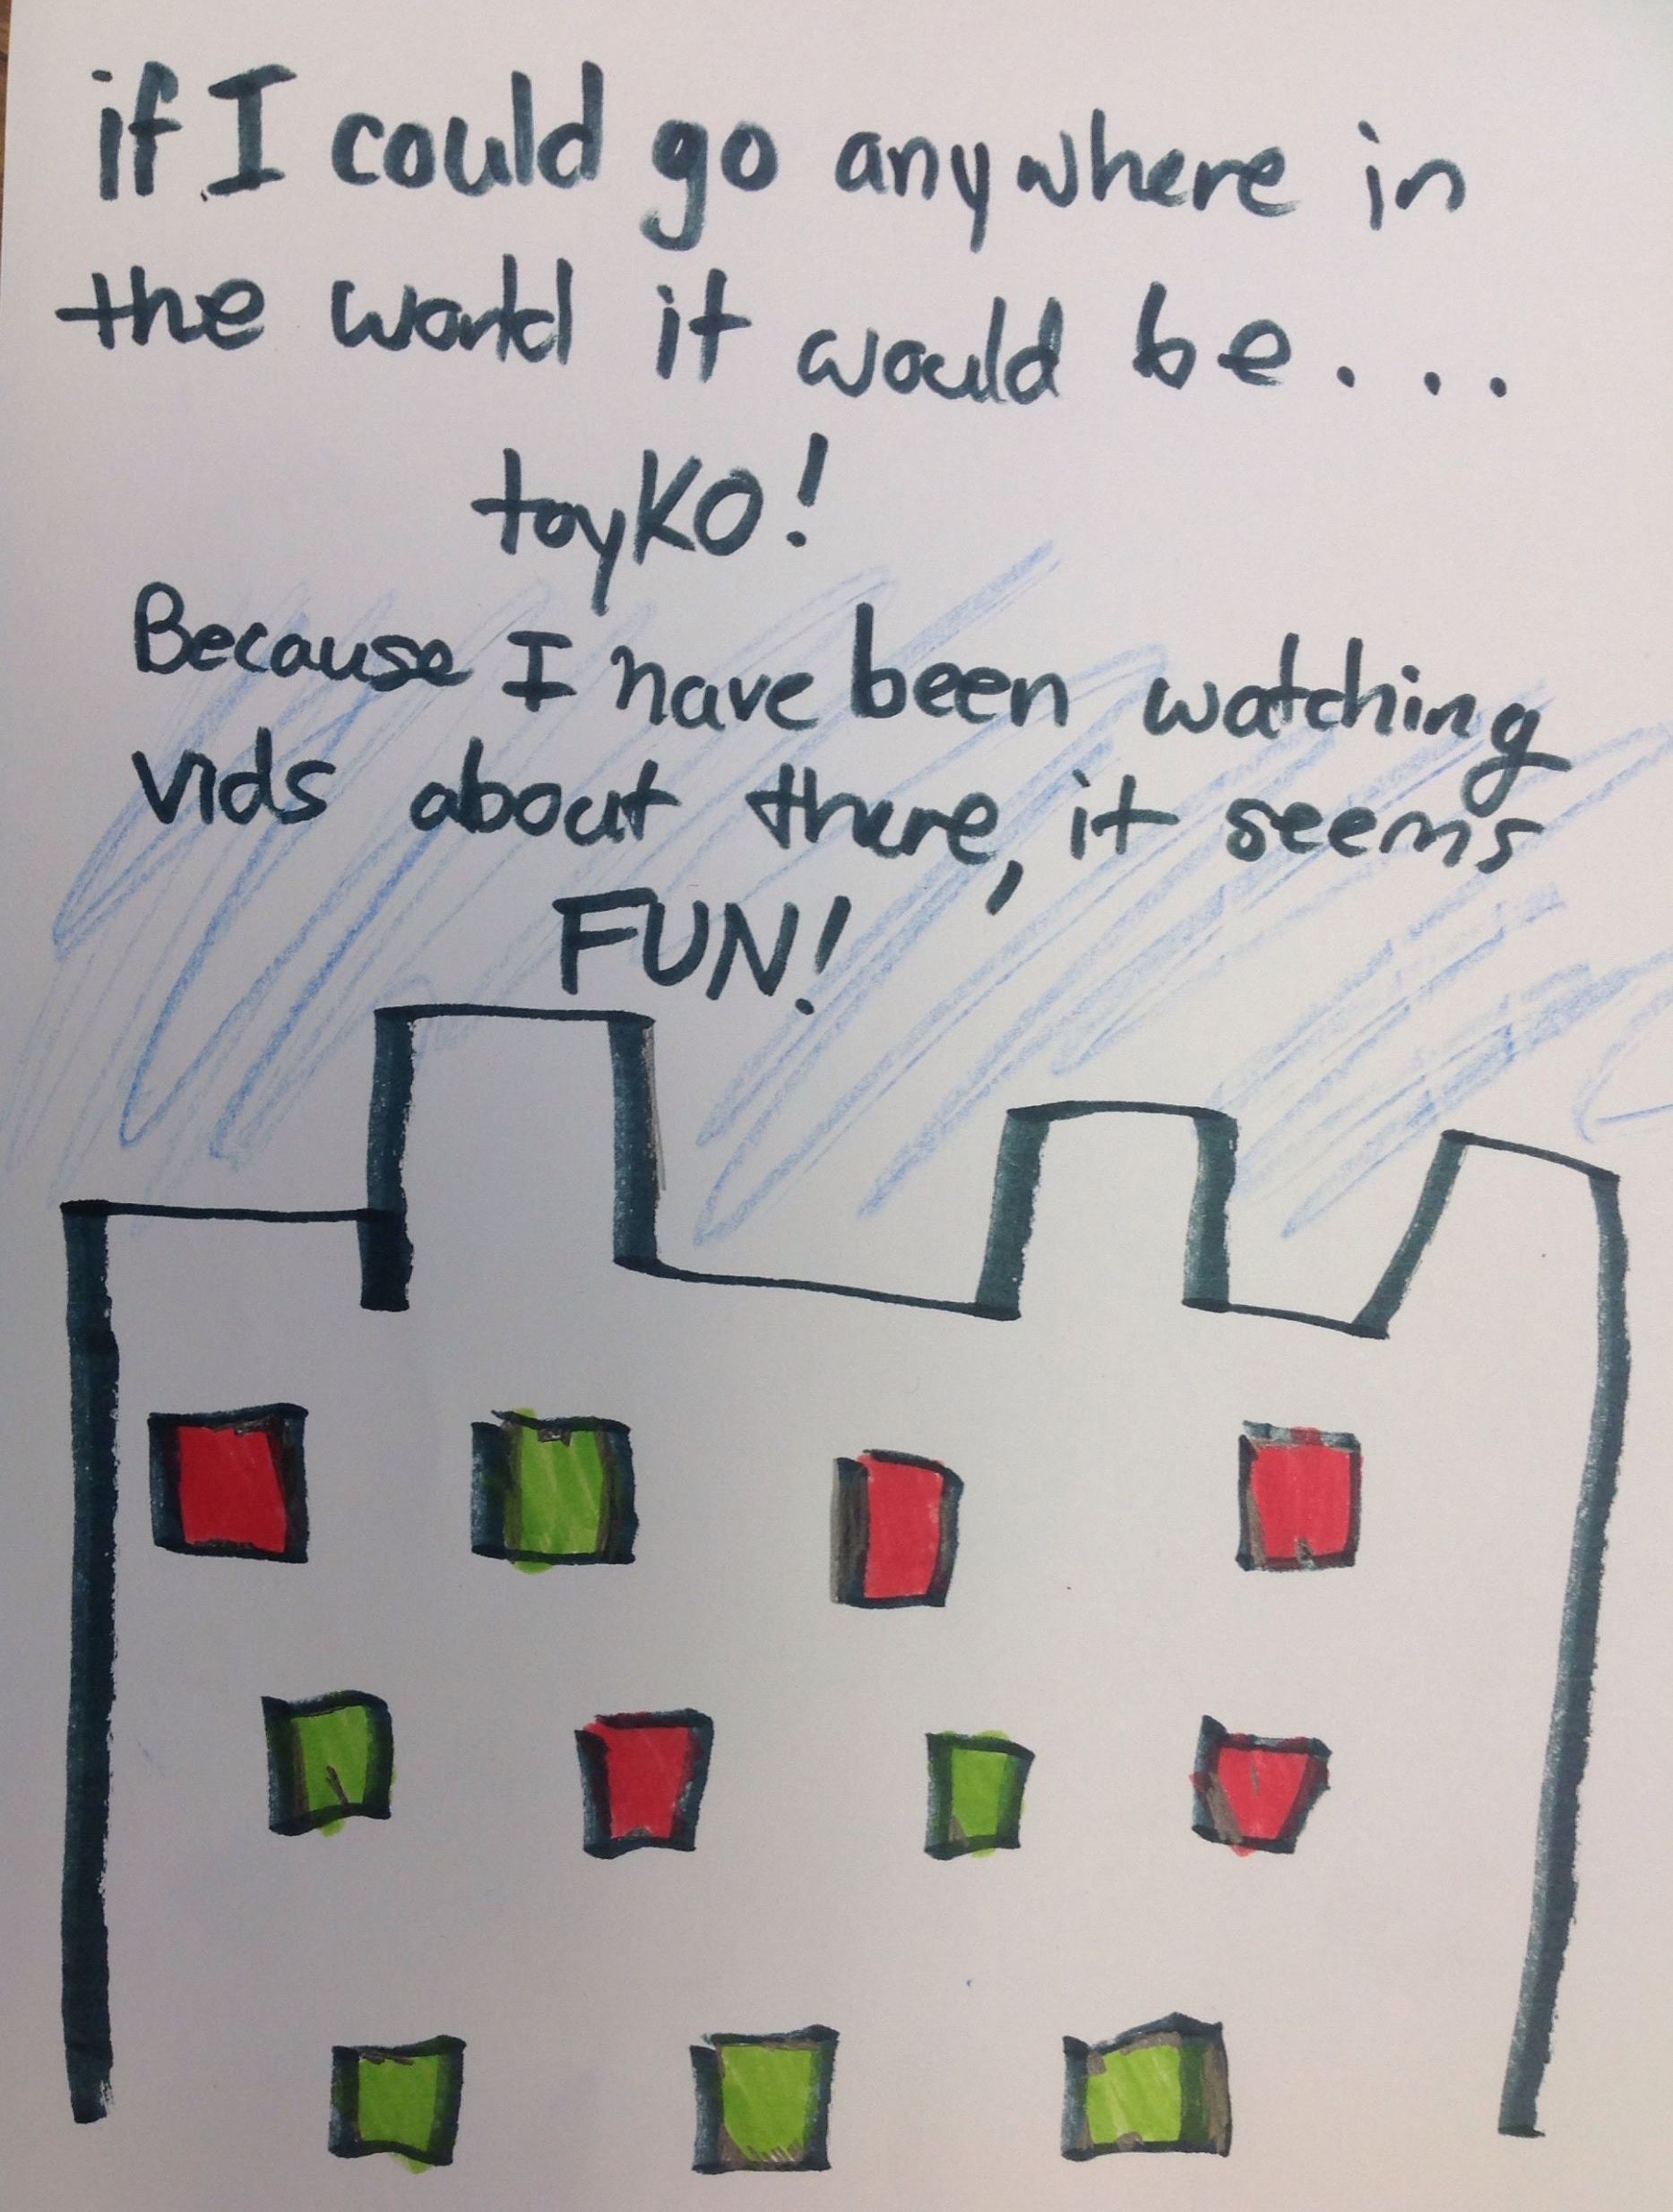 if I could go anywhere in
the world it would be...
toyKO!
Because I have been watching
vids about there, it seems
FUN!